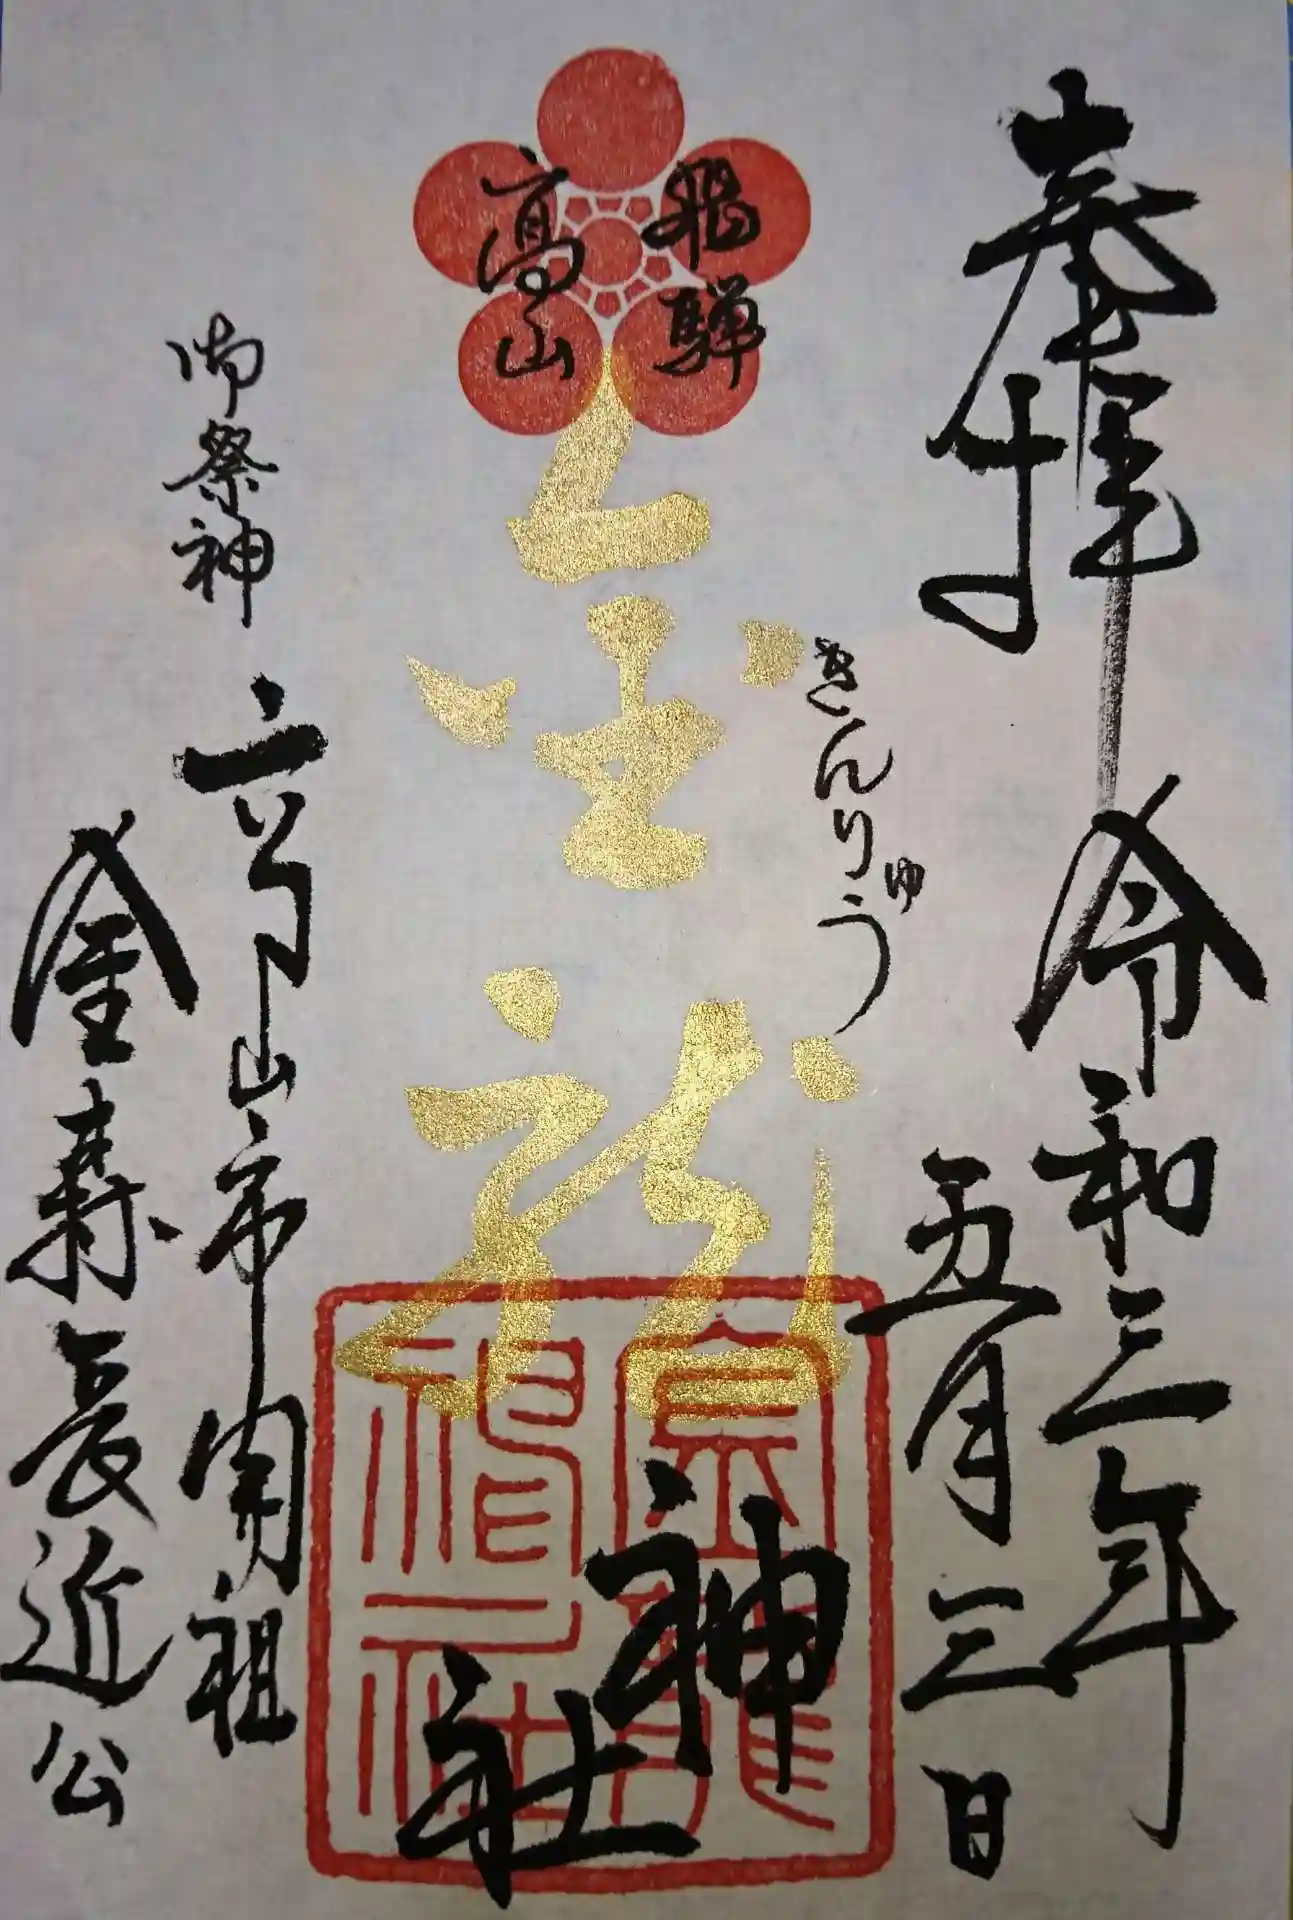 奉拝
令和三年
五月三日
飛騨
高山
きんりゅう
金龍
神社
御祭神
高山市開祖
金森長近公
金龍
神社